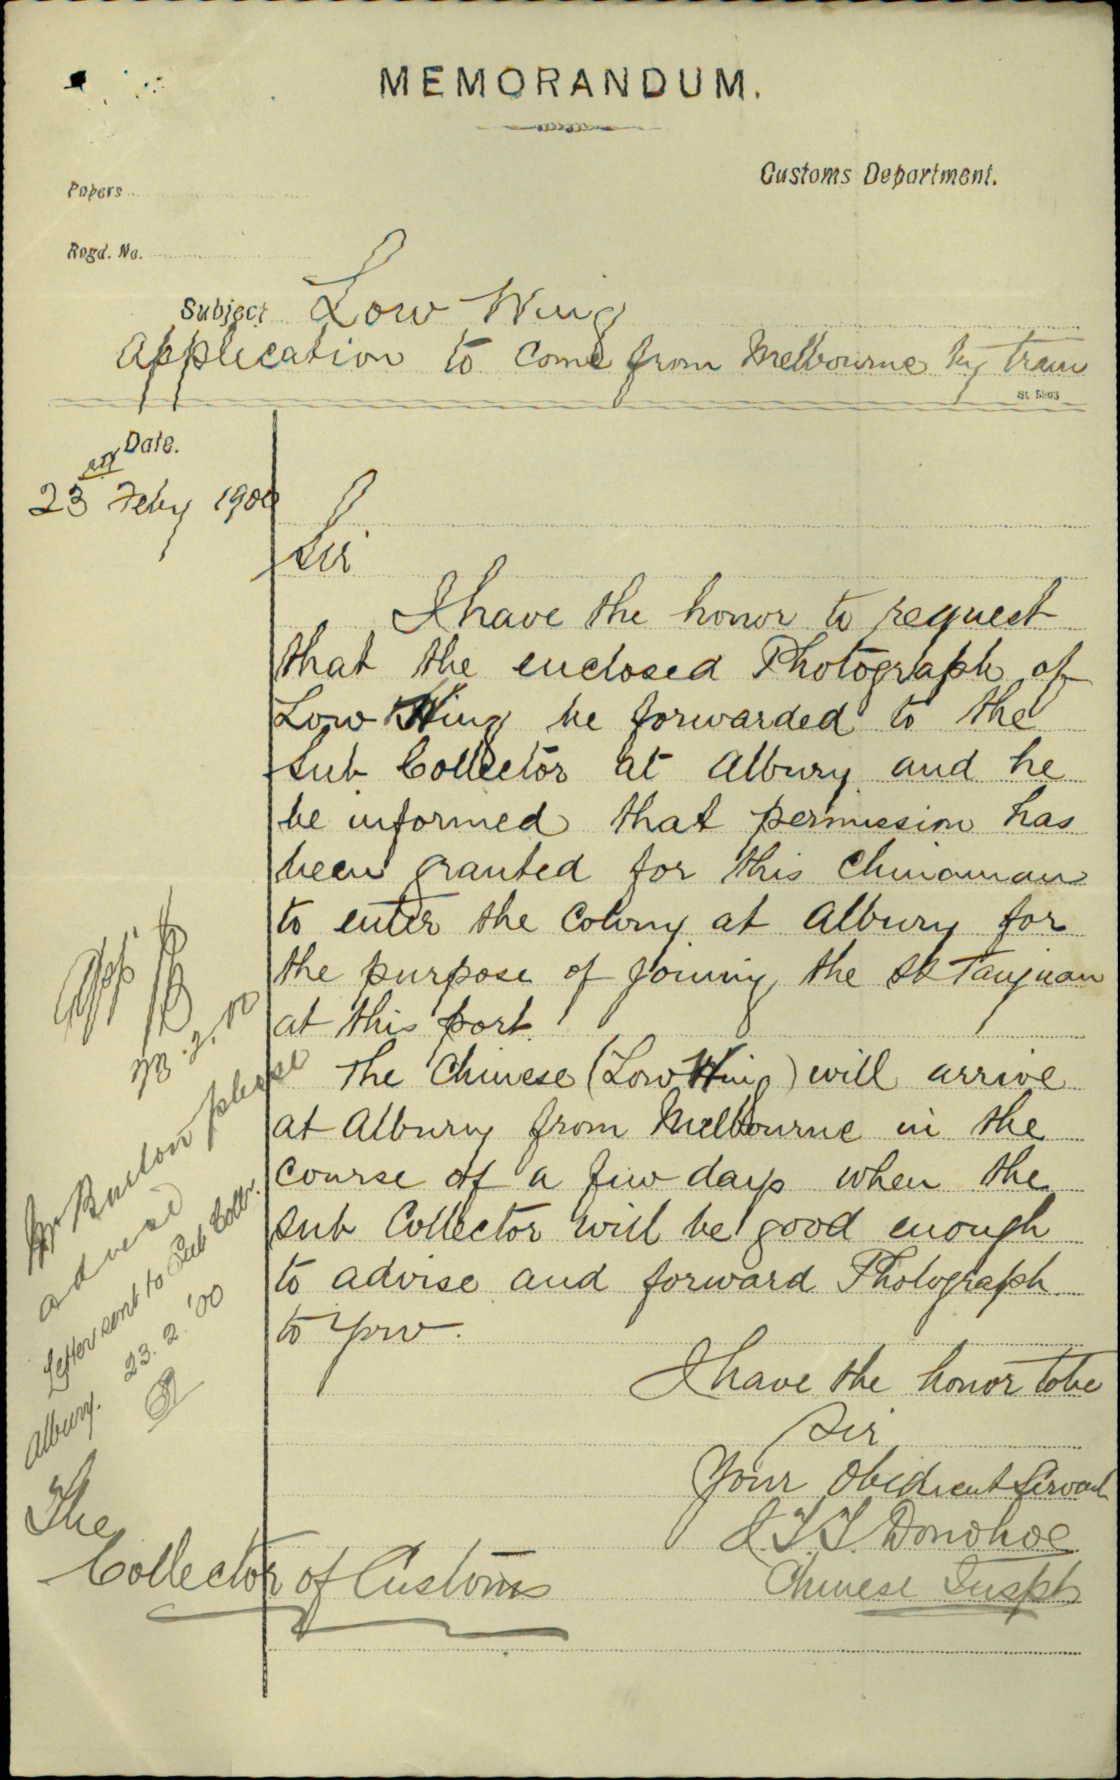 MEMORANDUM.
Customs Department.
Papers
Regd. No.
Subject Low Wing
Application to come from Melbourne by train
St. 5803
Date.
23rd Feby 1900
Sir
I have the honor to request
that the enclosed Photograph of
Low Wing be forwarded to the
Sub Collector at Albury and he
be informed that permission has
been granted for this Chinaman
to enter the Colony at Albury for
the purpose of joining the SS Taiyuan
at this port.
The Chinese (Low Wing) will arrive
at Albury from Melbourne in the
course of a few days when the
Sub Collector will be good enough
to advise and forward Photograph
to you.
I have the honor to be
Sir
Your Obedient Servant
J.T.T. Donohoe
Chinese Inspr
App
23.2.00
Mr Burton please
advise
Letter sent to Sub Collr.
Albury. 23.2.'00
The
Collector of Customs